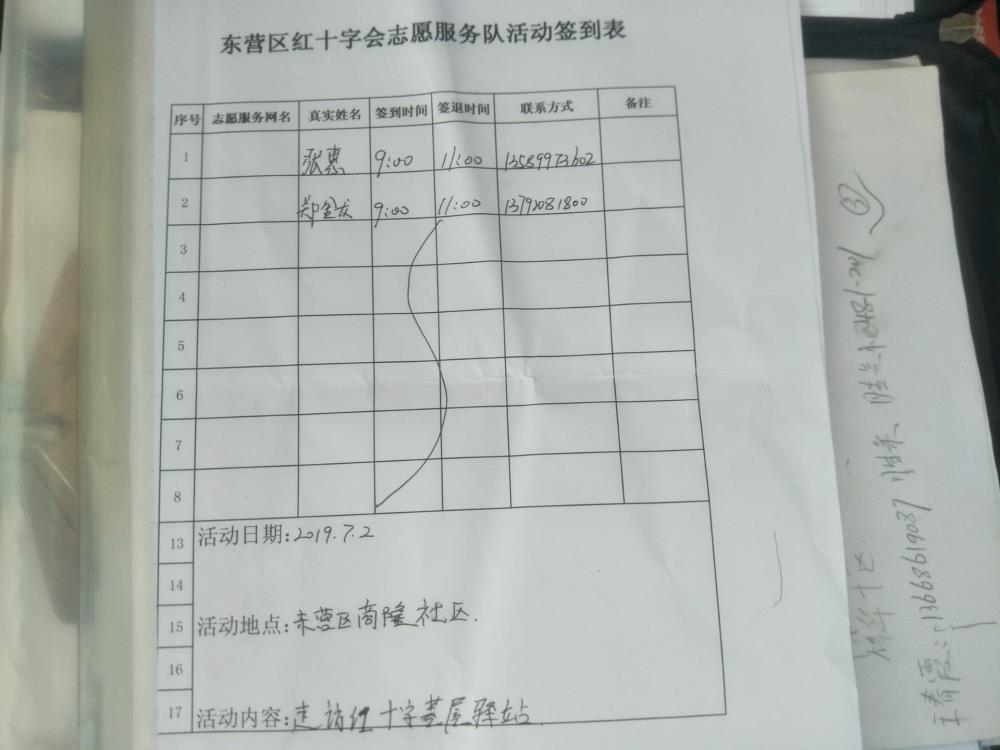 东营区红十字会志愿服务队活动签到表
序号 志愿服务网名 真实姓名 签到时间 签退时间 联系方式 备注
1 张惠 9:00 11:00 13589973602
2 郑金友 9:00 11:00 13792081800
3
4
5
6
7
8
13 活动日期:2019.7.2
14
15 活动地点:东营区商隆社区.
16
17 活动内容:走访红十字基层驿站.
王春霞:13698619087